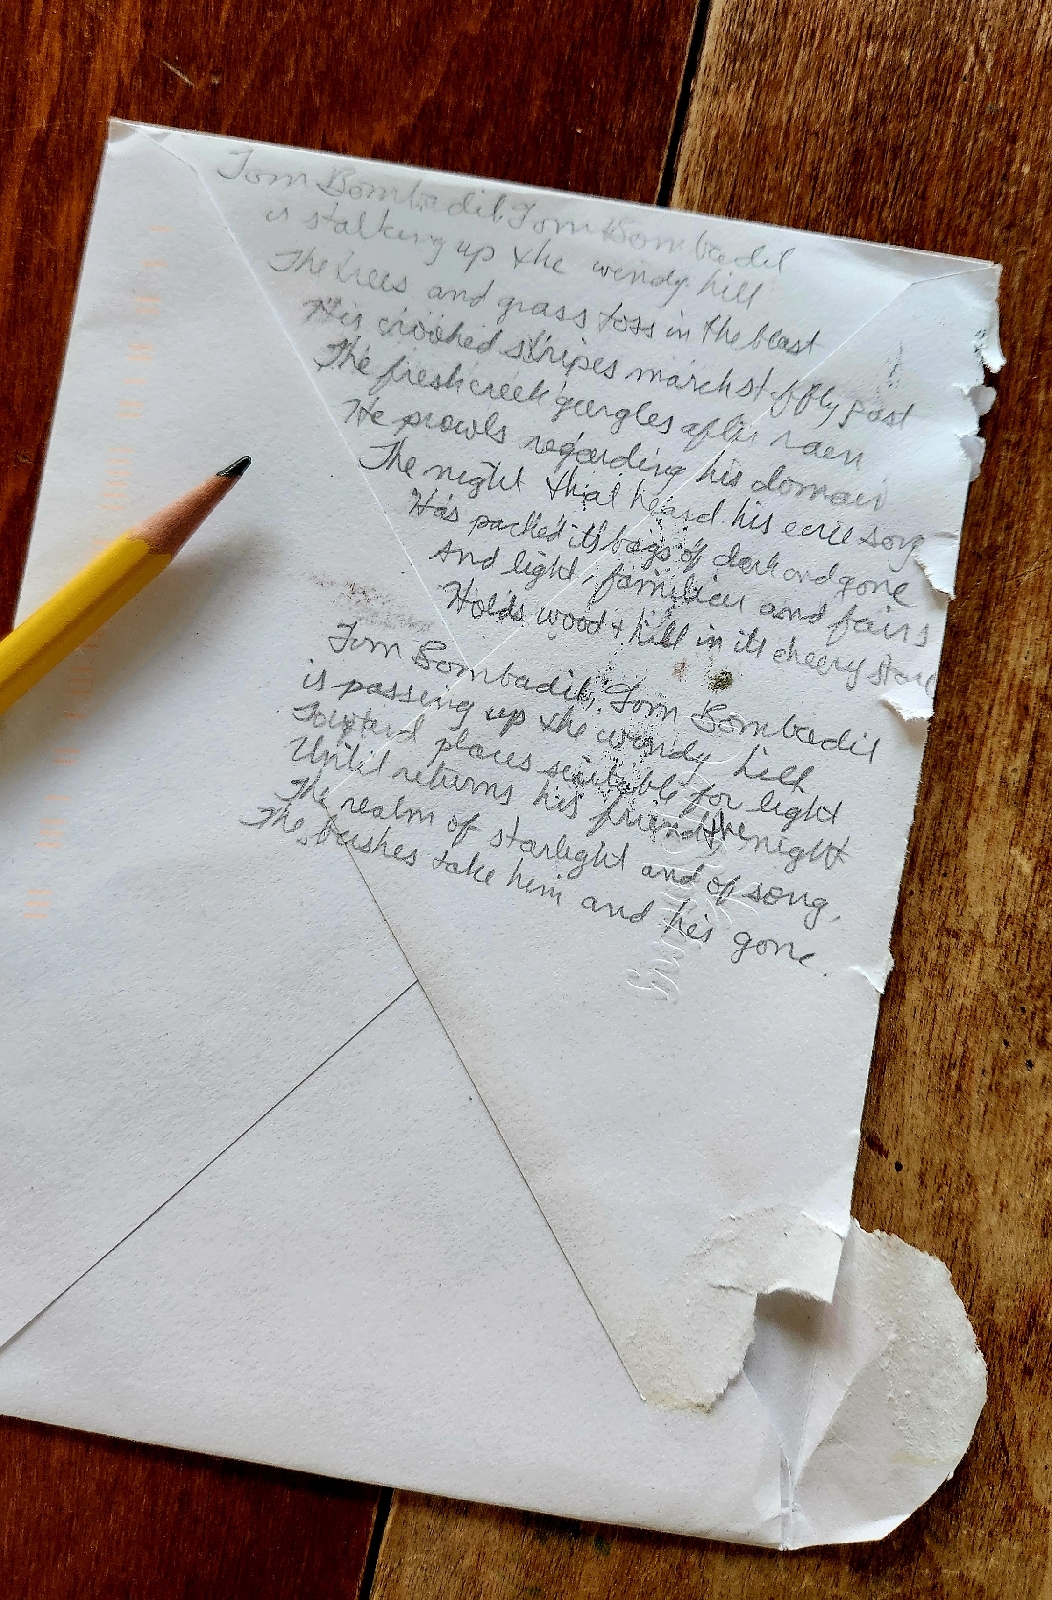 Tom Bombadil, Tom Bombadil
is stalking up the windy hill
The trees and grass toss in the blast
His crooked stripes march stiffly past
The fresh creek gurgles after rain
He prowls regarding his domain
The night that heard his eerie song
Has packed its bags of dark and gone
And light, familiar and fair,
Holds wood + hill in its cheery
Tom Bombadil, Tom Bombadil
is passing up the windy hill
Toward places suitable for light
Until returns his friend the night
The realm of starlight and of song,
The bushes take him and his gone.